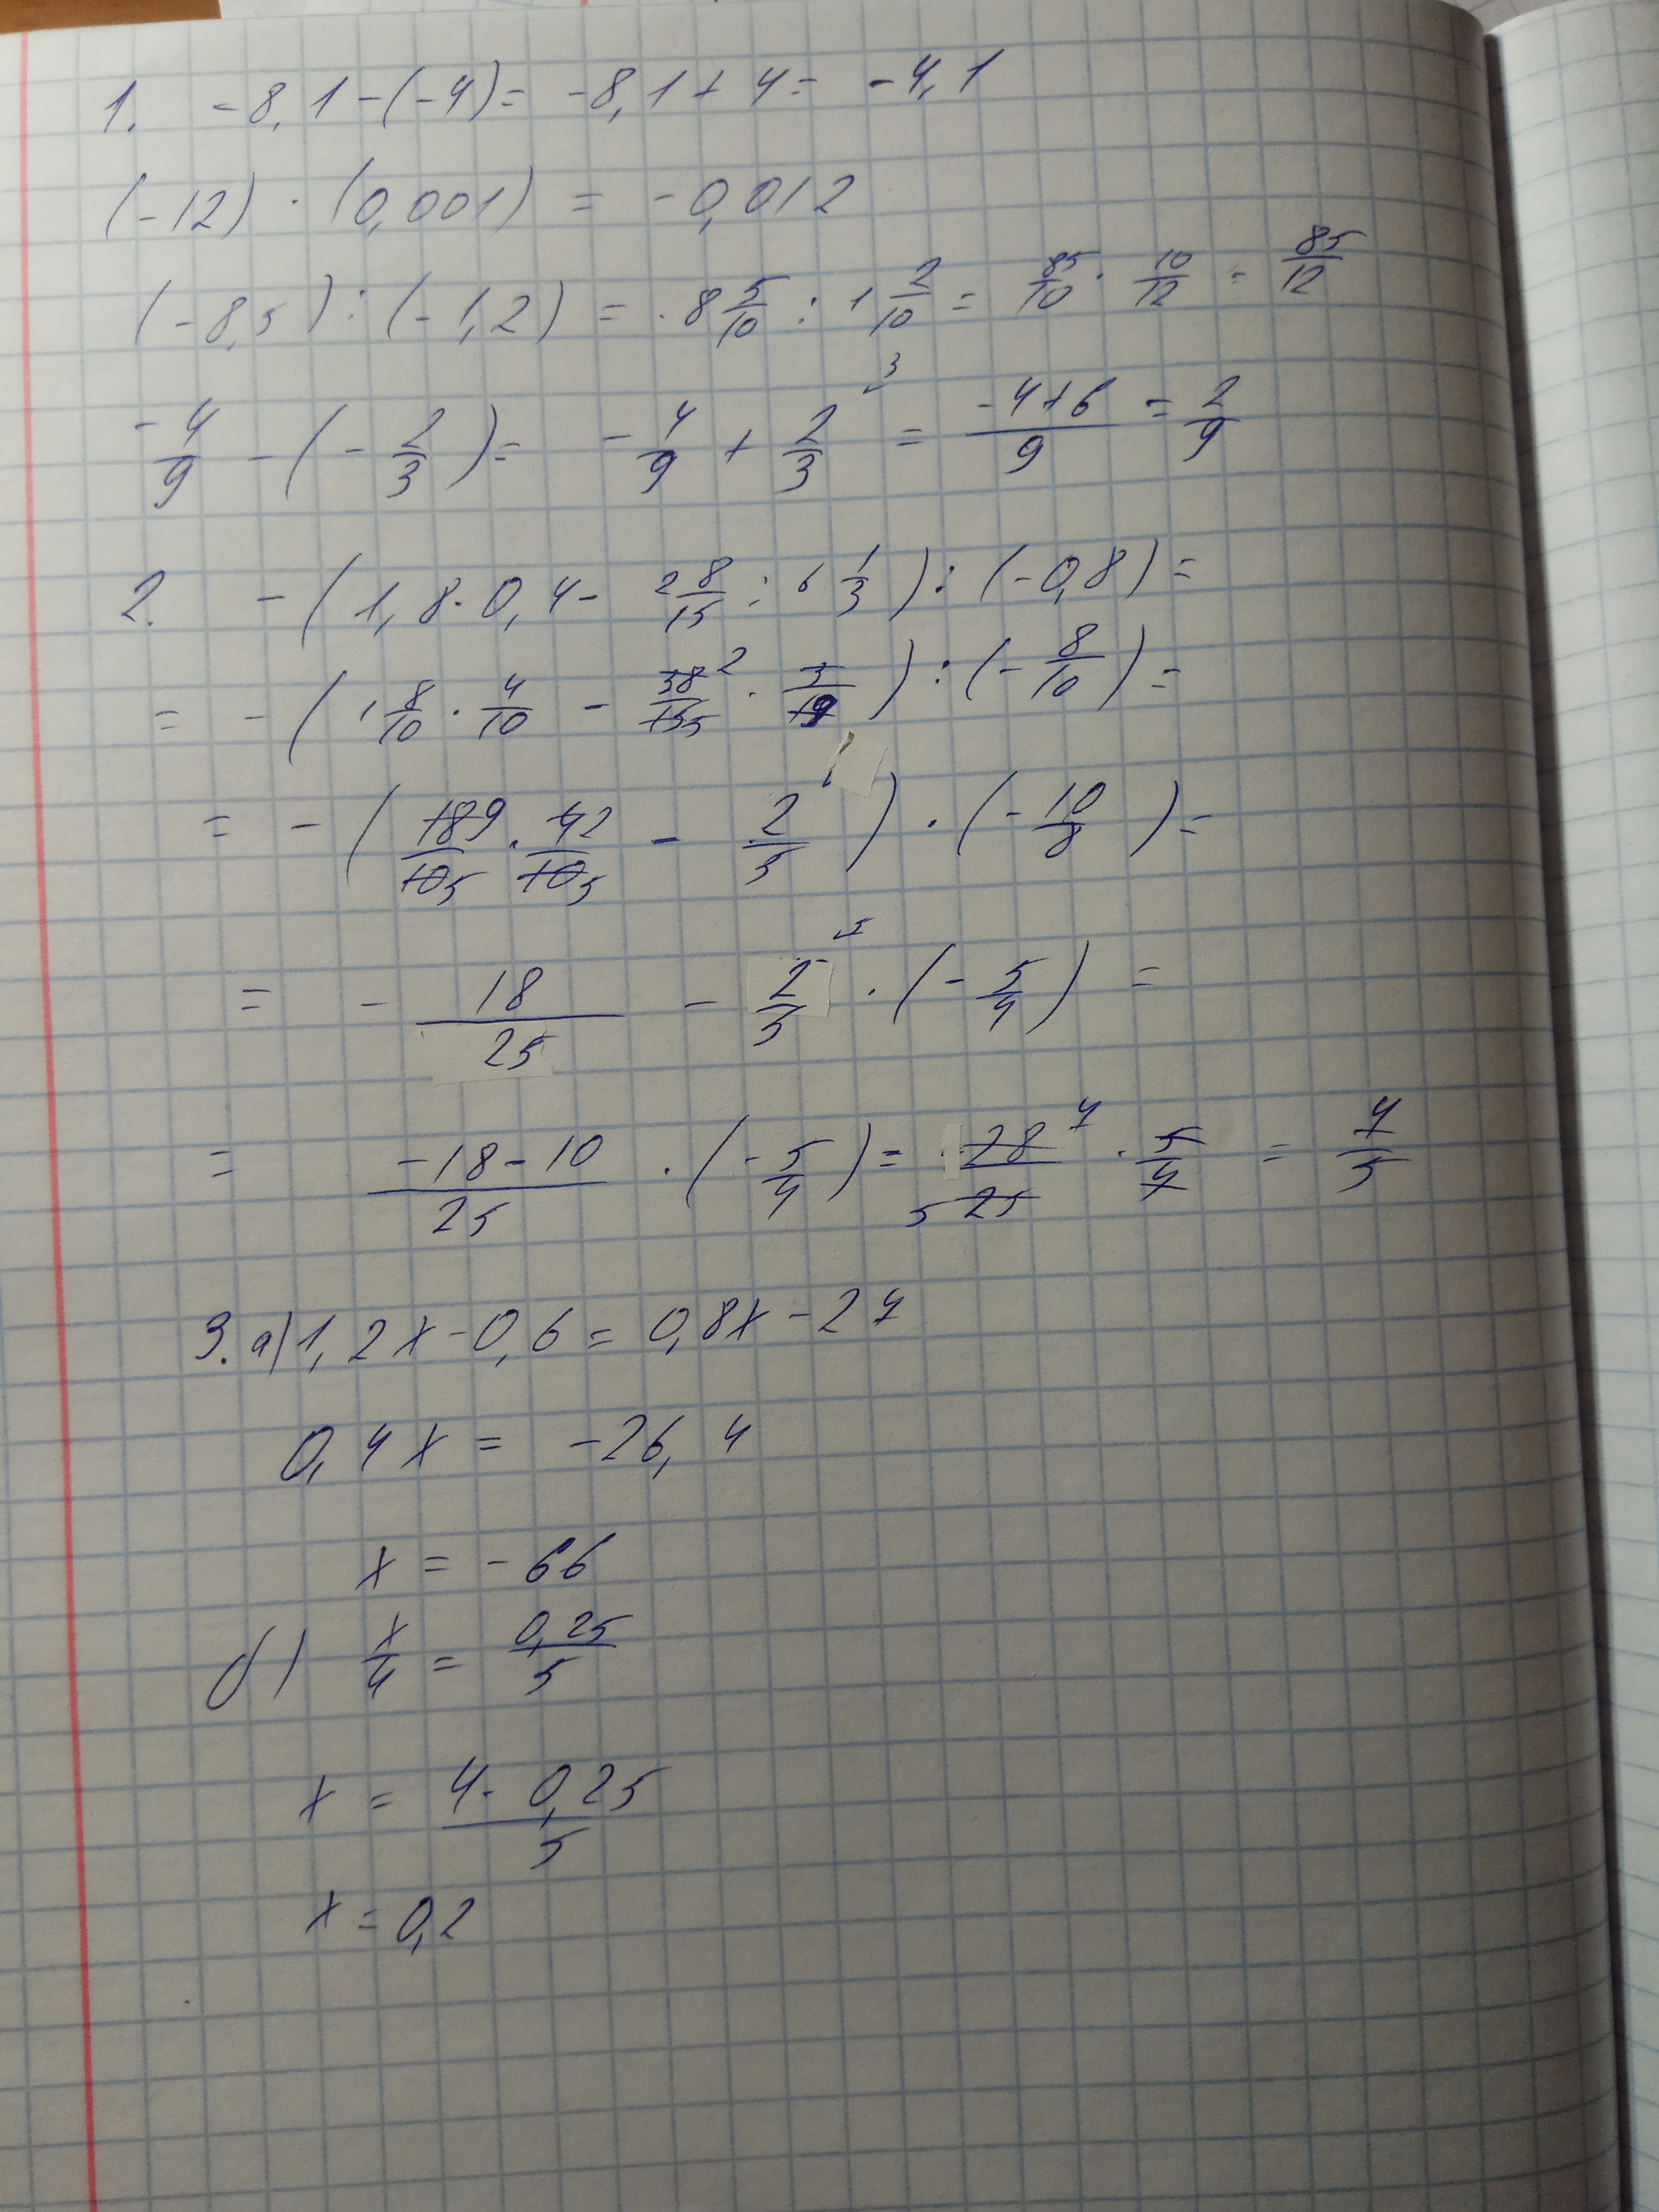 1. -8,1-(-4)= -8,1+4= -4,1
(-12)·(0,001) = -0,012
(-8,5):(-1,2) = 8 5/10 : 1 2/10 = 85/10 · 10/12 = 85/12
-4/9 - (-2/3) = -4/9 + 2/3 3 = -4+6/9 = 2/9
2. -(1,8·0,4- 2 8/15 : 6 1/3):(-0,8)=
= -(1 8/10 · 4/10 - 38 2/15 5 · 3/19):(-8/10)=
= -(18 9/10 5 · 4 2/10 5 - 2/5)·(-10/8)=
= -18/25 - 2/5 5 ·(-5/4) =
= -18-10/25 ·(-5/4)= 28 7/5 25 · 5/4 = 7/5
3. а) 1,2x-0,6=0,8x-27
0,4x = -26,4
x = -66
б) x/4 = 0,25/5
x = 4·0,25/5
x = 0,2